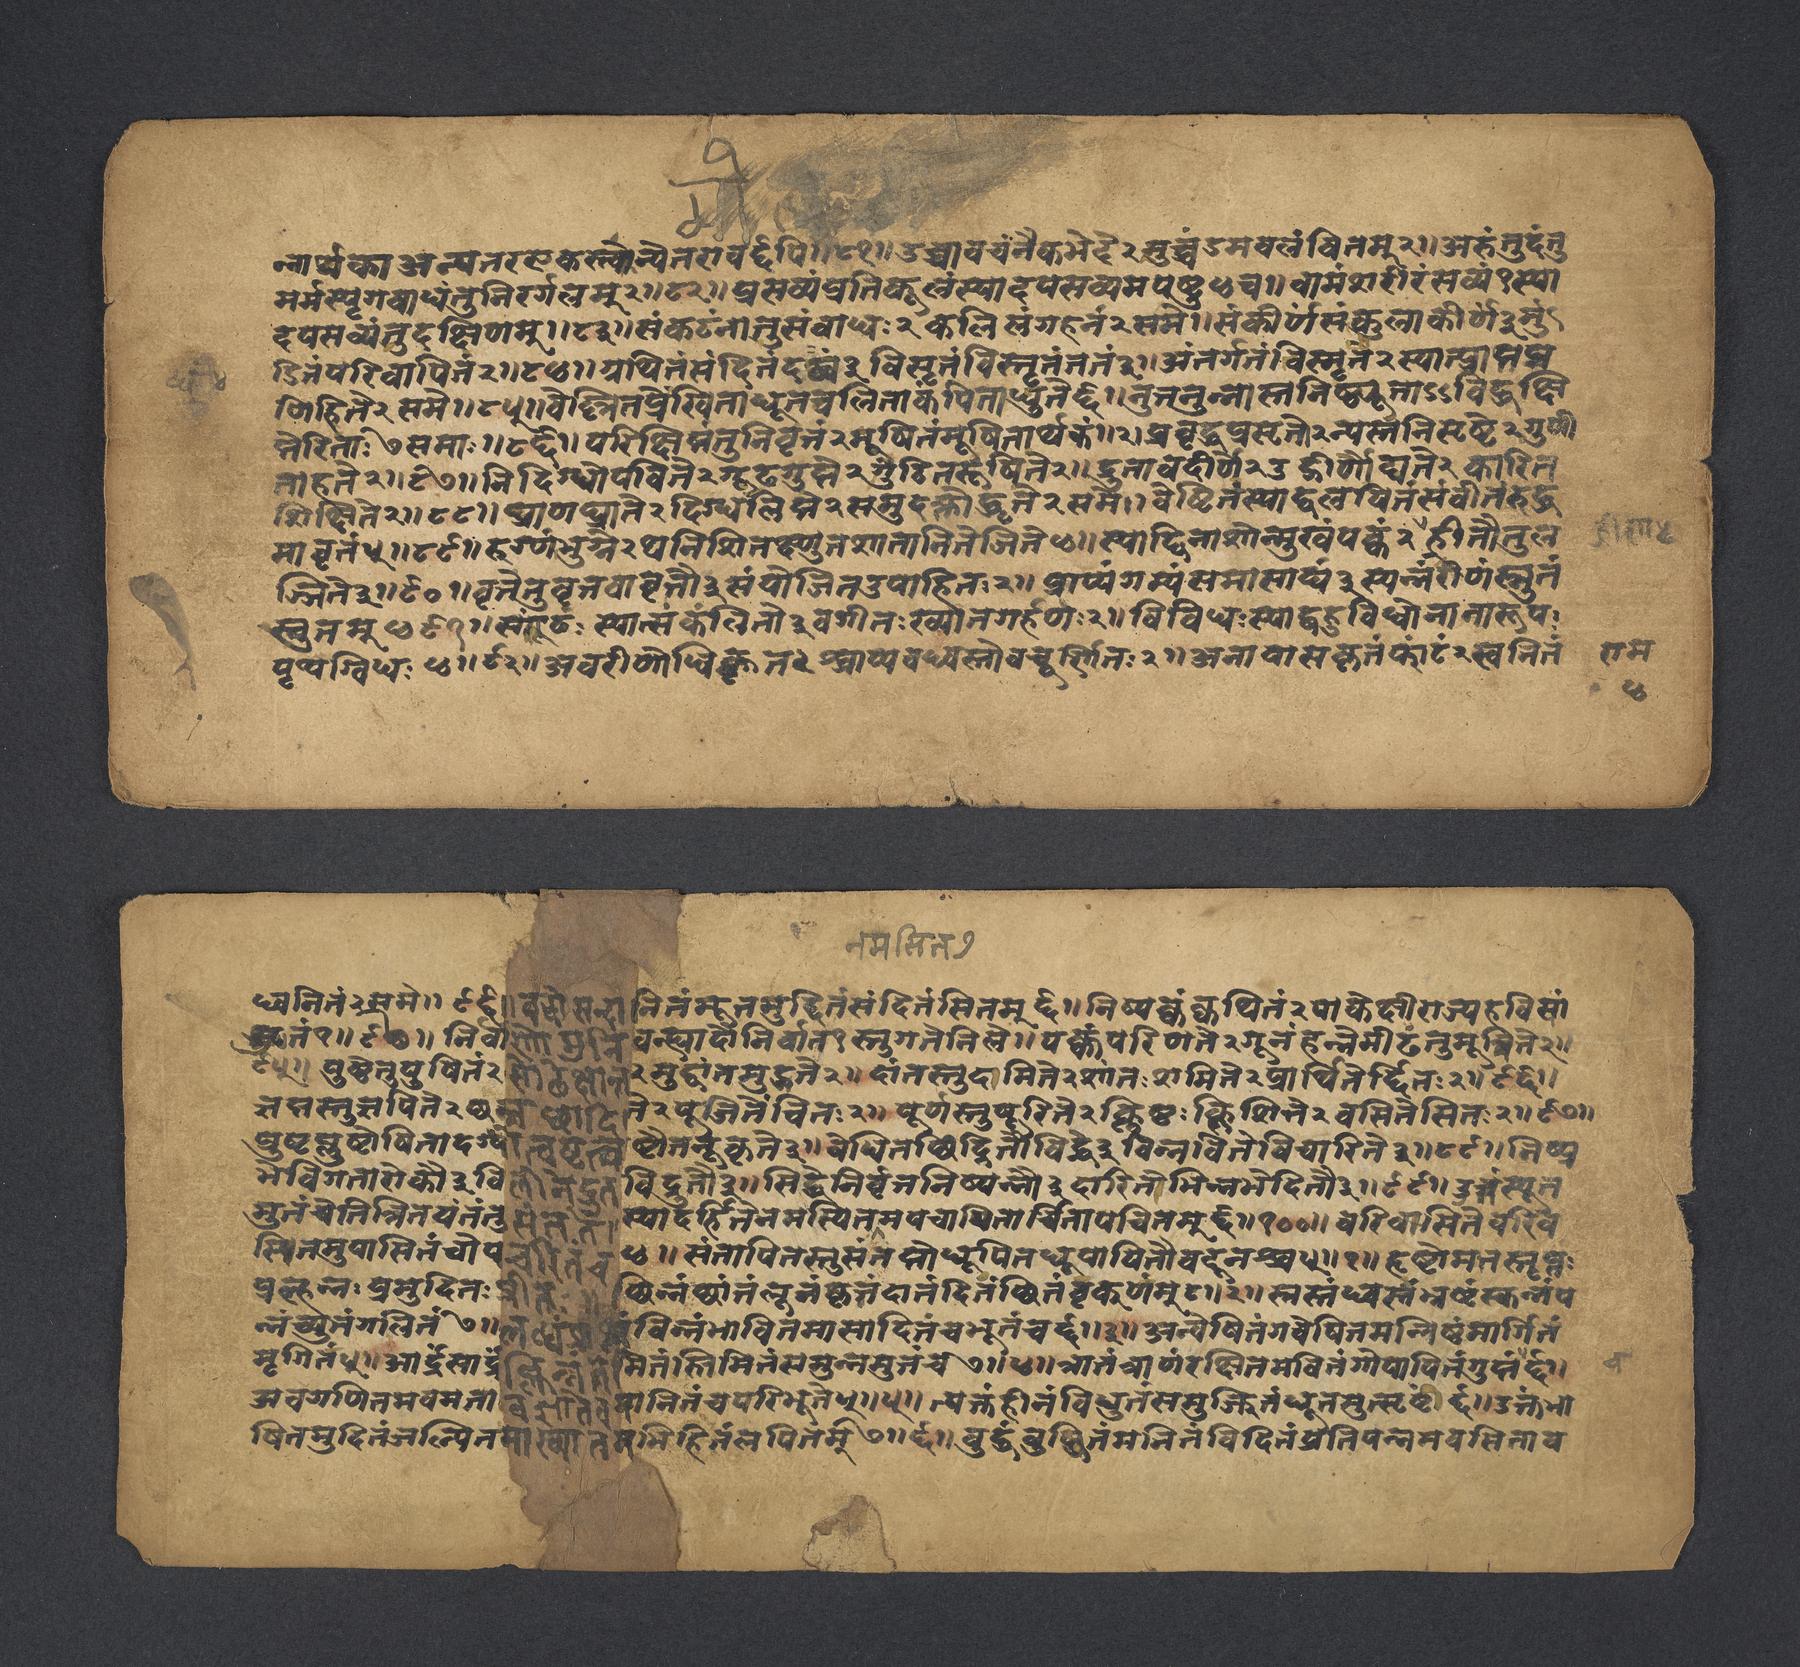 न्नार्थका अन्यतर एकस्त्वोन्यैतरावर्द्दपि॥८१॥उच्चावचंनैकभेदं२मुच्चंडमवलंबितम्२॥अरुंतुदंतु
मर्मस्पृगबाधंतुनिरर्गलम्२॥८२॥प्रसव्यंप्रतिकूलंस्यादपसव्यमपष्टु४च॥वामंशरीरंसव्यं१स्या
दपसव्यंतुदक्षिणम्१॥८३॥संकटंनातुसंबाधः२कलिलंगहनं२समे॥संकीर्णसंकुलाकीर्णे३मुं
डितंपरिवापितं२॥८४॥ग्रथितंसंदितंदृब्धं३विसृतंविस्तृतंततं३॥अंतर्गतंविस्मृतं२स्यात्प्राप्तप्र
णिहिते२समे॥८५॥वेल्लितप्रेंखिताधूतचलिताकंपिताधुते६॥नुत्तनुन्नास्तनिष्ठ्यूताऽऽविद्धक्षि
प्तेरिताः७समाः॥८६॥परिक्षिप्तंतुनिवृतं२मूषितंमुषितार्थकं२॥प्रवृद्धप्रसृते२न्यस्तनिसृष्टे२गुणी
ताहते२॥८७॥निदिग्धोपचिते२गूढगुप्ते२गुंठितरूषिते२॥द्रुतावदीर्णे२उद्गूर्णोद्यते२काचित
शिक्यिते२॥८८॥घ्राणघ्राते२दिग्धलिप्ते२समुदक्तोद्धृते२समे॥वेष्टितंस्याद्वलयितंसंवीतंरुद्ध
मावृतं५॥८९॥रुग्णंभुग्ने२थनिशितक्ष्णुतशातानितेजिते४॥स्याद्विनाशोन्मुखंपक्वं२ह्रीतौतुल
ज्जिते३॥९०॥वृत्तेतुवृतवावृत्तौ३संयोजितउपाहितः२॥प्राप्यंगम्यंसमासाद्यं३स्यन्नंरीणंस्नुतं
स्रुतम्४९१॥संगूढः स्यात्संकलितो३वगीतःख्यातगर्हणः२॥विविधःस्याद्बहुविधोनानारूपः
पृथग्विधः४॥९२॥अवरीणोधिक्कृत२श्चाप्यवध्वस्तोवचूर्णितः२॥अनायासकृतंफांटं२स्वनितं
राम
४
नमसित१
ध्वनितं२समे॥९६॥बद्धेसन्दानितंमूतमुद्दितंसंदितंसितम्६॥निष्पक्वंक्वथितं२पाकेक्षीराज्यहविषां
शृतं१॥९४॥निर्वाणोमुनिवन्ह्यादौनिर्वातस्तुगतेनिले॥पक्वंपरिणते२गूनंहन्नेमीढंतुमूत्रिते२॥
९५॥पुष्टेतुपुषितं२सोढेक्षान्त२मुद्वांतमुद्गते२॥दांतस्तुदामिते२शांतःशमिते२प्रार्थितेर्द्दितः२॥९६॥
ज्ञप्तस्तुज्ञपिते२छन्नश्छादिते२पूजितेंचितः२॥पूर्णस्तुपूरिते२क्लिष्टःक्लिशिते२वसितेसितः२॥९७॥
प्रुष्टप्लुष्टोषितादग्धेतष्टत्वष्टौतनूकृते३॥वेधितच्छिद्रितौविद्धे३विन्नवित्तेविचारिते३॥९८॥निष्प्र
भेविगतारोकौ३विलीनेद्रुतविद्रुतौ३॥सिद्धेनिर्वृत्तनिष्पन्नौ३दारितेभिन्नभेदितौ३॥९९॥उतंस्यूत
मुतंचेतित्रितयंतंतुसंतते॥स्यादर्हितेनमस्यितमपचायितार्चितापचितम्६॥१००॥वरिवसितेवरिव
स्यितमुपासितंचोपचरितंच४॥संतापितस्तुसंतप्तोधूपितधूपायितौचदूनश्च५॥१॥हृष्टोमत्तस्तृप्तः
प्रह्लन्नःप्रमुदितःप्रीतः॥छिन्नंछातंलूनंकृतंदातंदितंछितंवृक्णम्८॥२॥स्रस्तंध्वस्तंभ्रष्टंस्कन्नंप
न्नंच्युतंगलितं७॥लब्धंप्राप्तंविन्नंभावितमासादितंचभूतंच६॥३॥अन्वेषितंगवेषितमन्विष्टंमार्गितं
मृगितं५॥आर्द्रंसार्द्रंक्लिन्नंतिमितंस्तिमितंसमुन्नमुत्तंच७॥४॥त्रातंत्राणंरक्षितमवितंगोपायितंगुप्तं६॥
अवगणितमवमतावज्ञातेवमानितंचपरिभूते५॥५॥त्यक्तंहीनंविधुतंसमुज्झितंधूतमुत्सृष्टे६॥उक्तंभा
षितमुदितंजल्पितमाख्यातमभिहितंलपितम्७॥६॥बुद्धंबुधितंमनितंविदितंप्रतिपन्नमवसिताव